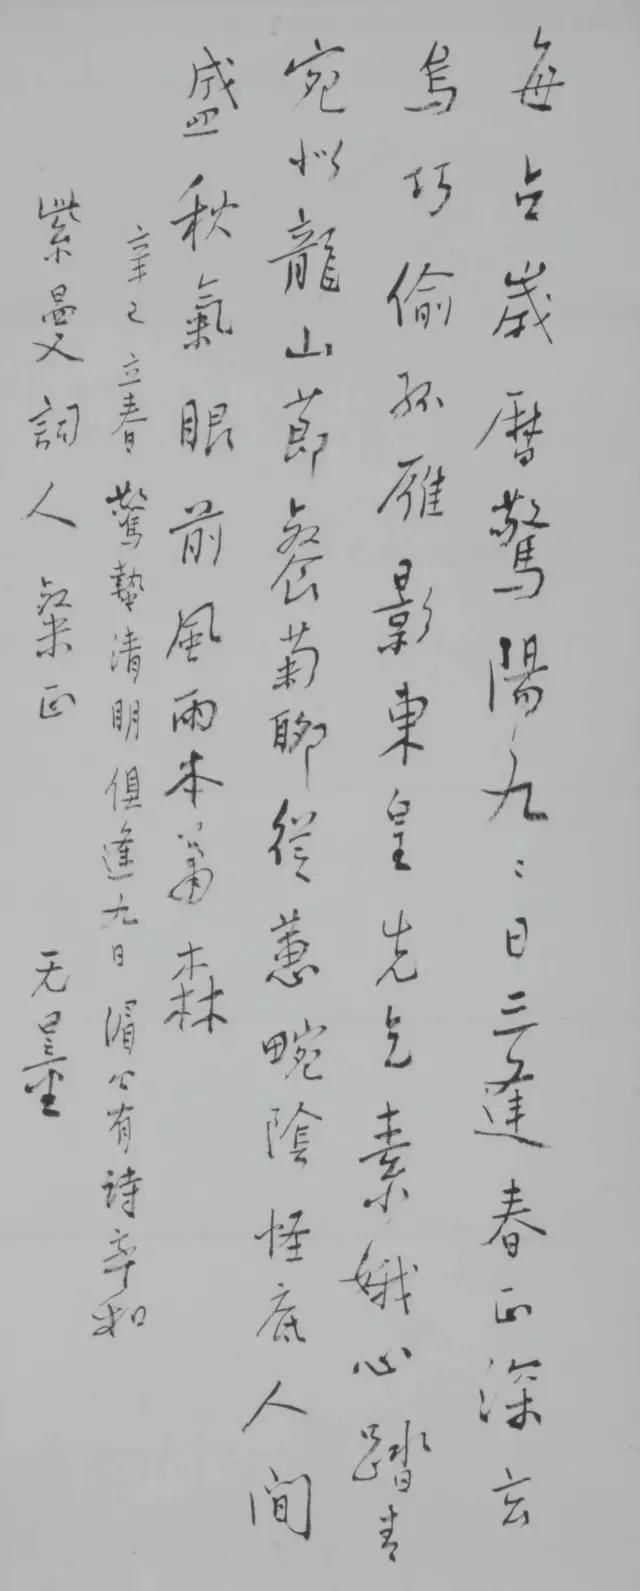 每占歲曆驚陽九〻日三逢春正深玄
烏巧偷孤雁影東皇先乞素娥心踏青
宛似龍山節餐菊聊從蕙畹陰怪底人間
盛秋氣眼前風雨本蕭森
辛巳立春驚蟄清明俱逢九日濱公有詩率和
紫曼詞人粲正 无量